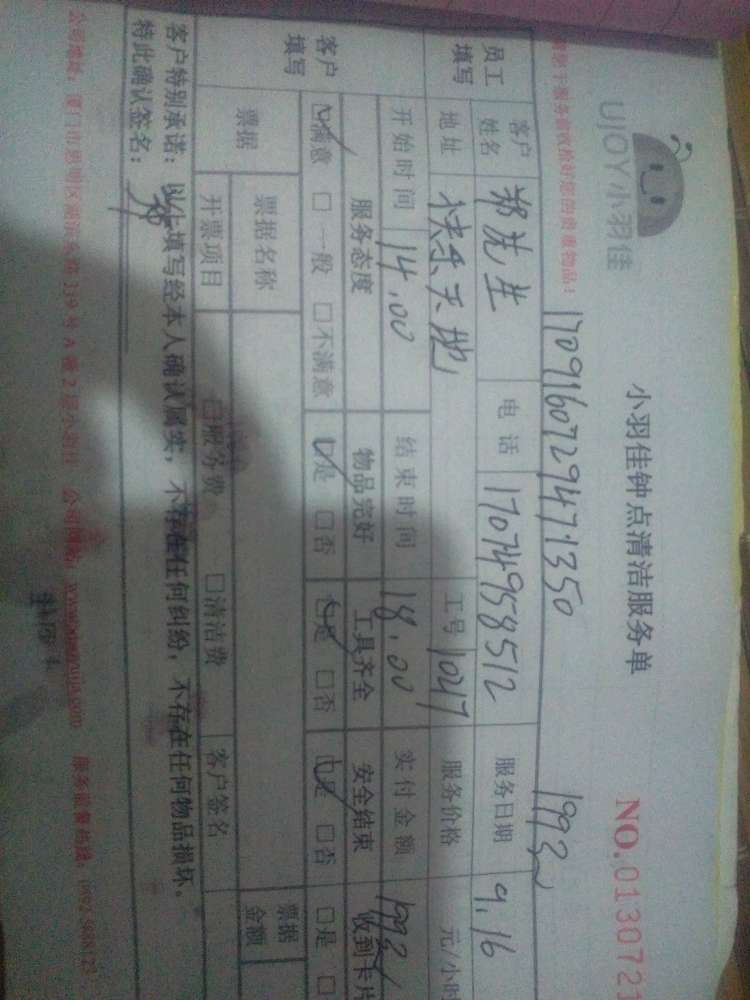 UJOY小羽佳
小羽佳钟点清洁服务单
NO.0130721
1709160729471350
199元
员工填写
客户姓名 郑先生 电话 17074958512 服务日期 9.16
地址 快乐天地 工号 1047 服务价格 元/小时
开始时间 14.00 结束时间 18.00 实付金额 199元
客户填写
服务态度 物品完好 工具齐全 安全结束 收到卡片
☑满意 □一般 □不满意 ☑是 □否 ☑是 □否 ☑是 □否 □是 □
票据 票据名称 票据金额
开票项目 □服务费 □清洁费 客户签名
客户特别承诺：以上填写经本人确认属实，不存在任何纠纷，不存在任何物品损坏。
特此确认签名：
公司地址：厦门市思明区